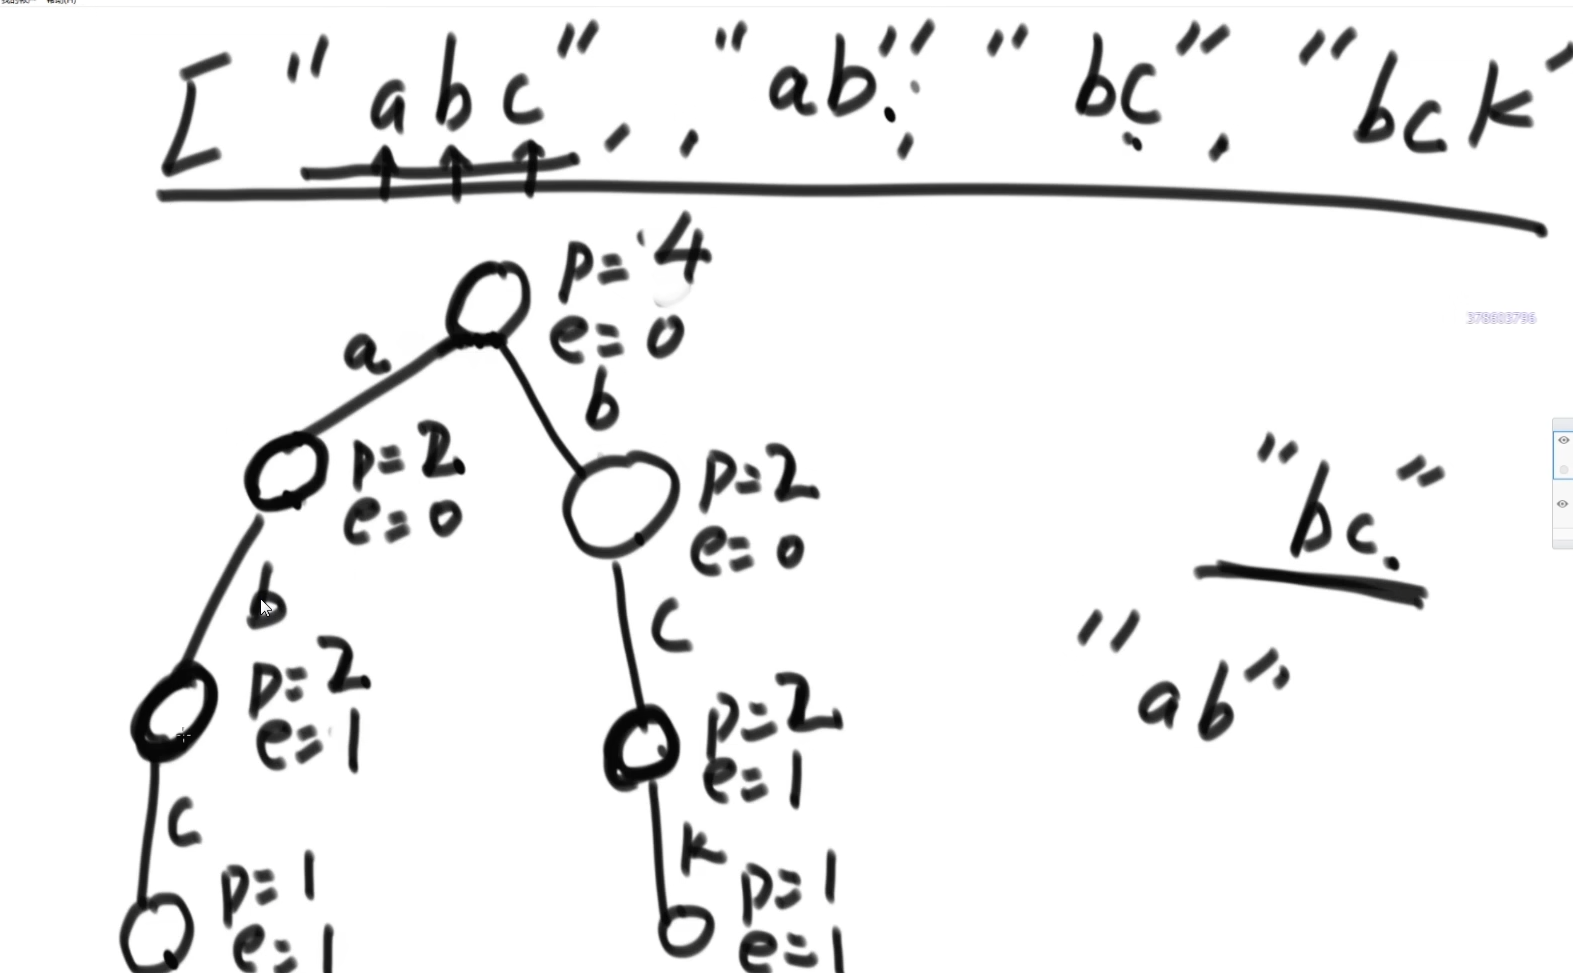 ["abc", "ab", "bc", "bck"
p=4
e=0
a
b
p=2
e=0
p=2
e=0
b
c
p=2
e=1
p=2
e=1
c
k
p=1
e=1
p=1
e=1
"bc"
"ab"
378603796